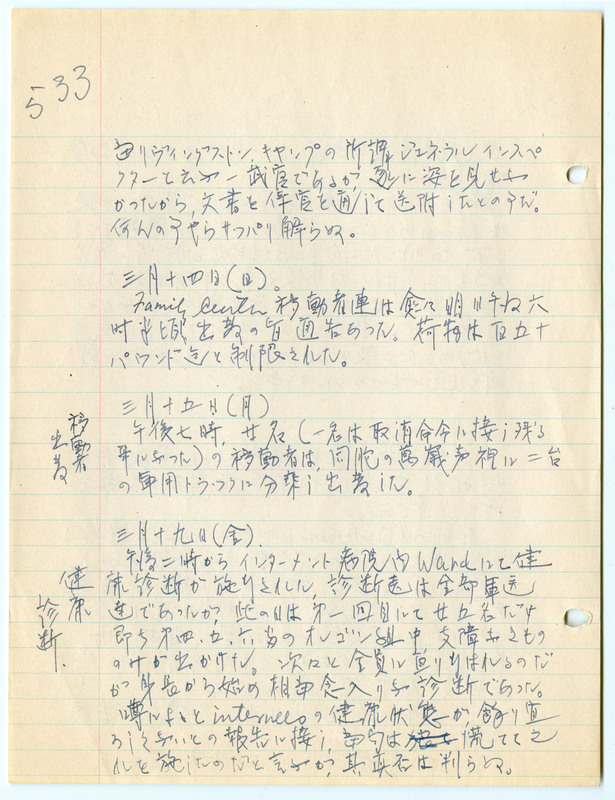 533
由リヴィングストン、キャンプの所謂ジェネラルインスペ
クターと云ふ一武官であるが、更に姿を見せな
かったから、文書を伴官を通じて送附したとの事だ。
何んの事やらサッパリ解らぬ。
三月十四日(日)。
Family Center 移動者連は愈々明日午后六
時半頃出発の旨通告あった。荷物は百五十
パウンド迄と制限された。
三月十五日(月)
移動者
出発
午後七時、廿名(一名は取消命令に接し残る
事になった)の移動者は、同胞の萬歳声裡に二台
の軍用トラックに分乗し出発した。
三月十九日(金)。
健康
診断.
午後二時からインターメント病院内Wardにて健
康診断が施行された。診断医は全部軍医
達であったが、此の日は第一回目にて廿五名だけ
即ち第四、五、六号のオレゴン組中支障なきもの
のみが出かけた。次々と全員に亘り行はれるのだ
が身長から始め相当念入りな診断であった。
噂によると internees の健康状態が、餘り宜
ろしくないとの報告に接し、当局は慌ててこ
れを施したのだと言ふが、其真否は判らぬ。